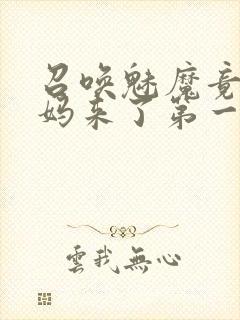 召唤魅魔竟
妈来了第一
雲我無心